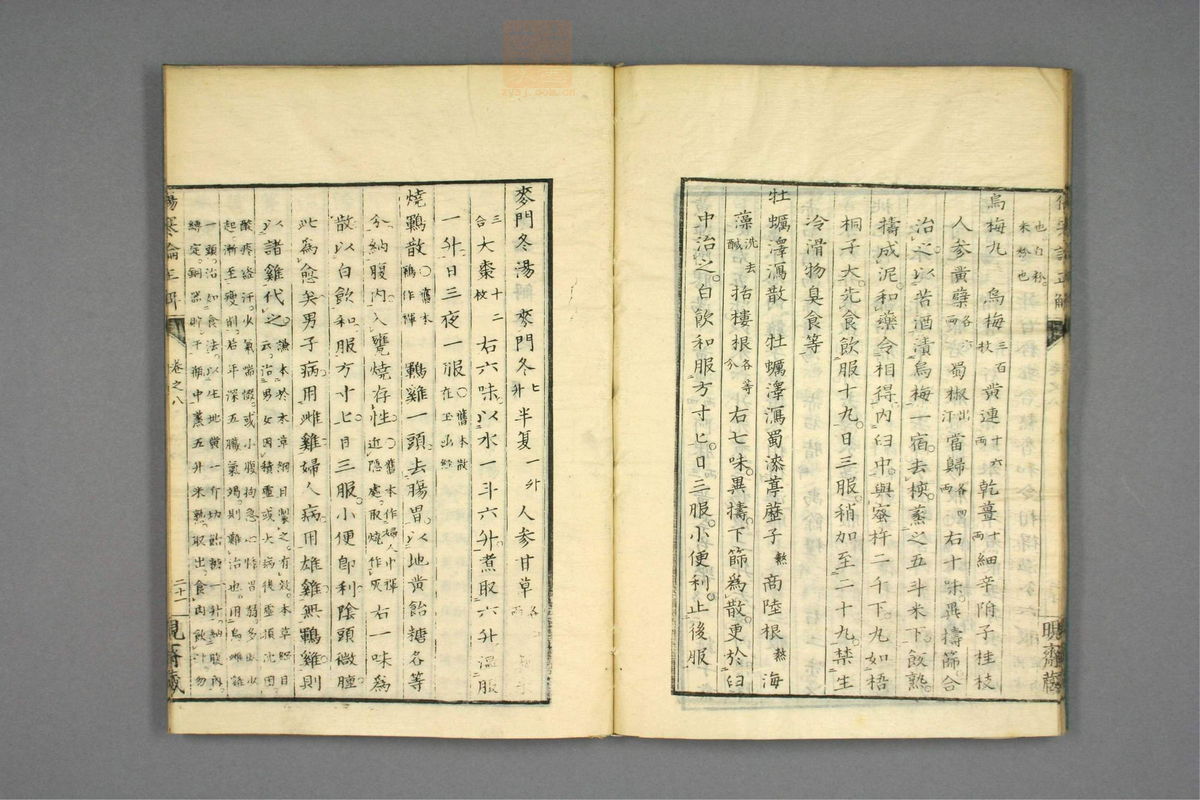 也白粉
米粉也
烏梅丸 烏梅三百枚黄連十六兩乾薑十兩細辛附子桂枝
人參黄蘗各六兩蜀椒出汗當歸各四兩右十味異擣篩合
治之以苦酒漬烏梅一宿去核蒸之五斗米下飯熟
擣成泥和藥令相得内臼中與蜜杵二千下丸如梧
桐子大先食飲服十丸日三服稍加至二十丸禁生
冷滑物臭食等
牡蠣澤瀉散 牡蠣澤瀉蜀漆葶藶子熬商陸根熬海
藻洗去鹹栝樓根各等分右七味異擣下篩爲散更於臼
中治之白飲和服方寸匕日三服小便利止後服
晛齋藏
麥門冬湯 麥門冬七升半夏一升人參甘草各二兩
三合大棗十二枚右六味以水一斗六升煮取六升温服
一升日三夜一服○舊本散在玉函經
燒鷄散○舊本鷄作褌 鷄雞一頭去腸胃以地黄飴糖各等
分納腹内入甕燒存性○舊本作婦人中褌近隱處取燒作灰右一味爲
散以白飲和服方寸匕日三服小便即利陰頭微腫
此為愈矣男子病用雌雞婦人病用雄雞無鷄雞則
以諸雞代之
起漸至瘦削若年深五臟氣竭則難治也用烏雌雞
一頭治如食法以生地黄一斤切飴糖一升納腹内
縛定銅器貯于甑中蒸五升米熟取出食肉飲汁勿
卷之八
二十一
晛齋藏